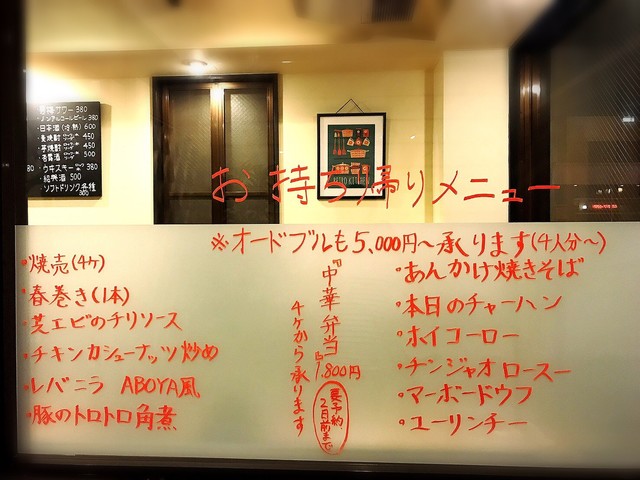 お持ち帰りメニュー
※オードブルも5,000円〜承ります(4人分〜)
・焼売(4ヶ)
・春巻き(1本)
・芝エビのチリソース
・チキンカシューナッツ炒め
・レバニラ ABOYA風
・豚のトロトロ角煮
『中華弁当』1,800円
4ヶから承ります
要予約
2日前まで
・あんかけ焼きそば
・本日のチャーハン
・ホイコーロー
・チンジャオロースー
・マーボードウフ
・ユーリンチー
サワー 380
・ノンアルコールビール 380
・日本酒(冷・熱) 600
・麦焼酎 450
・芋焼酎 450
500
・ウヰスキー 380
・紹興酒 500
・ソフトドリンク各種